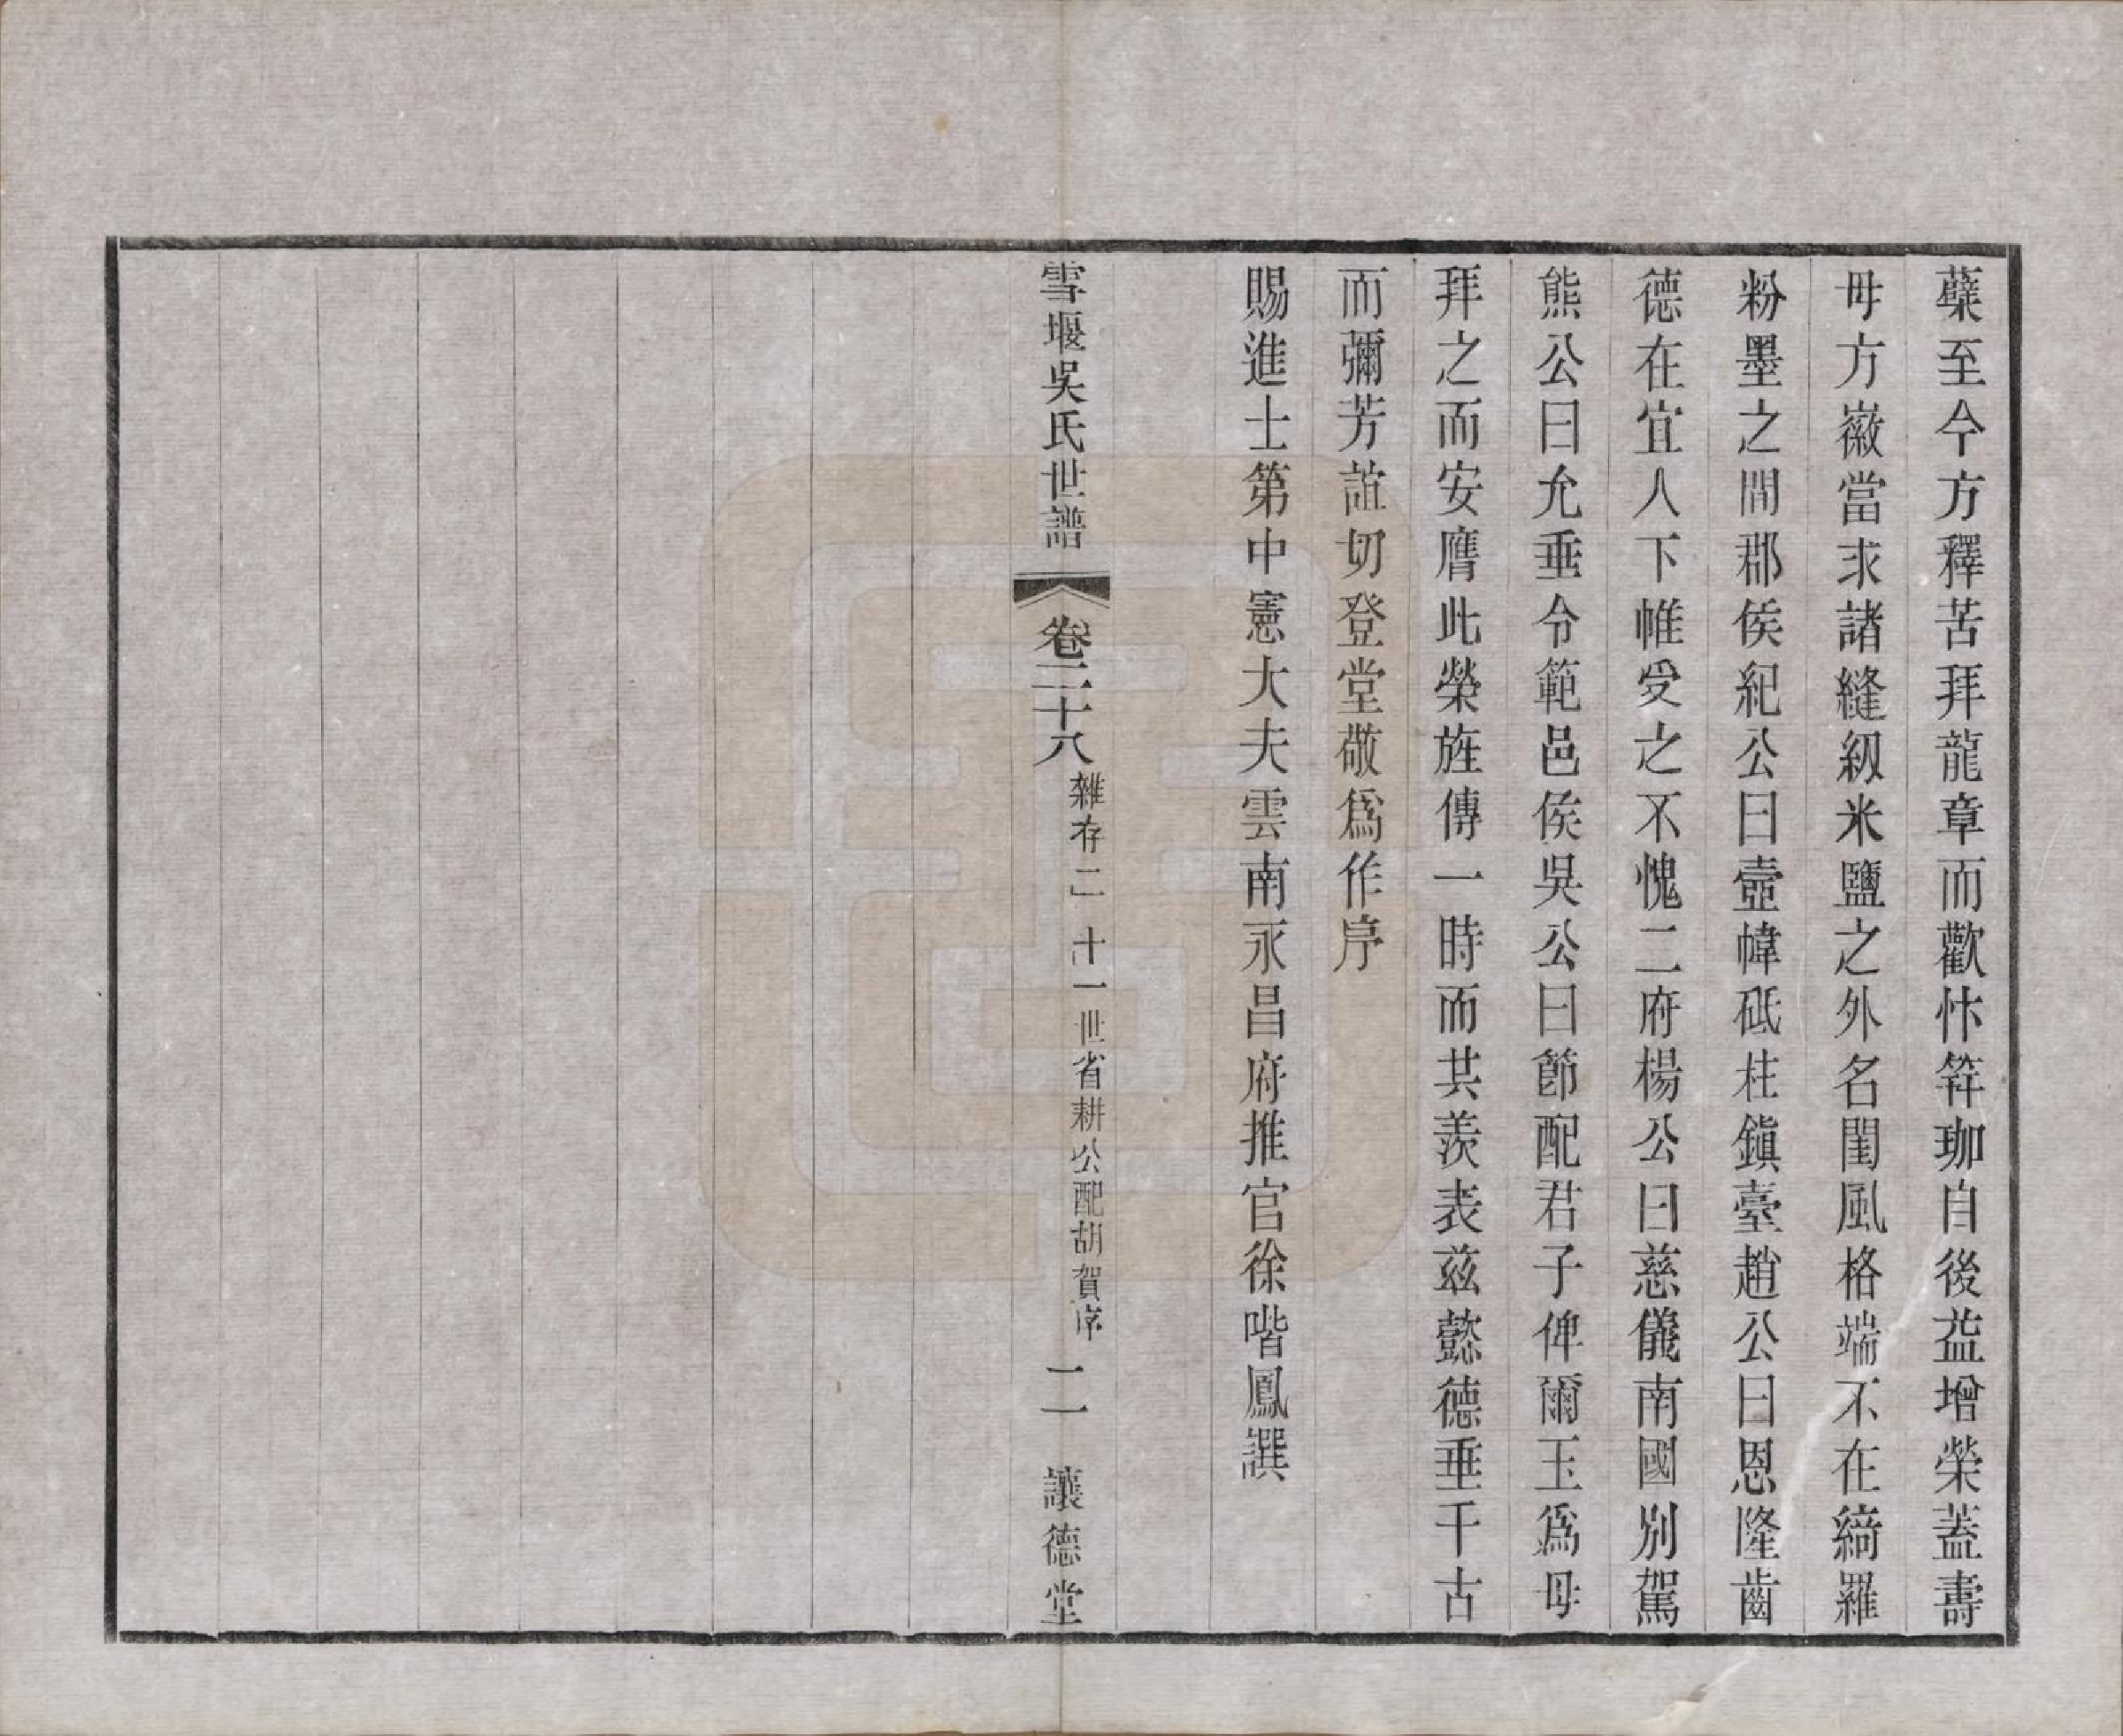 蘖至今方釋苦拜龍章而歡忭笄珈自後益增榮蓋壽
母方徽當求諸縫紉米鹽之外名閨風格端不在綺羅
粉墨之間郡侯紀公曰壼幃砥柱鎮臺趙公曰恩隆齒
德在宜人下帷受之不愧二府楊公曰慈儀南國別駕
熊公曰允垂令範邑侯吳公曰節配君子俾爾玉爲母
拜之而安膺此榮旌傳一時而共羨表茲懿德垂千古
而彌芳誼切登堂敬爲作序
賜進士第中憲大夫雲南永昌府推官徐喈鳳譔
雪堰吳氏世譜 卷二十八 雜存二 十一世省耕公配胡賀序 二 讓德堂